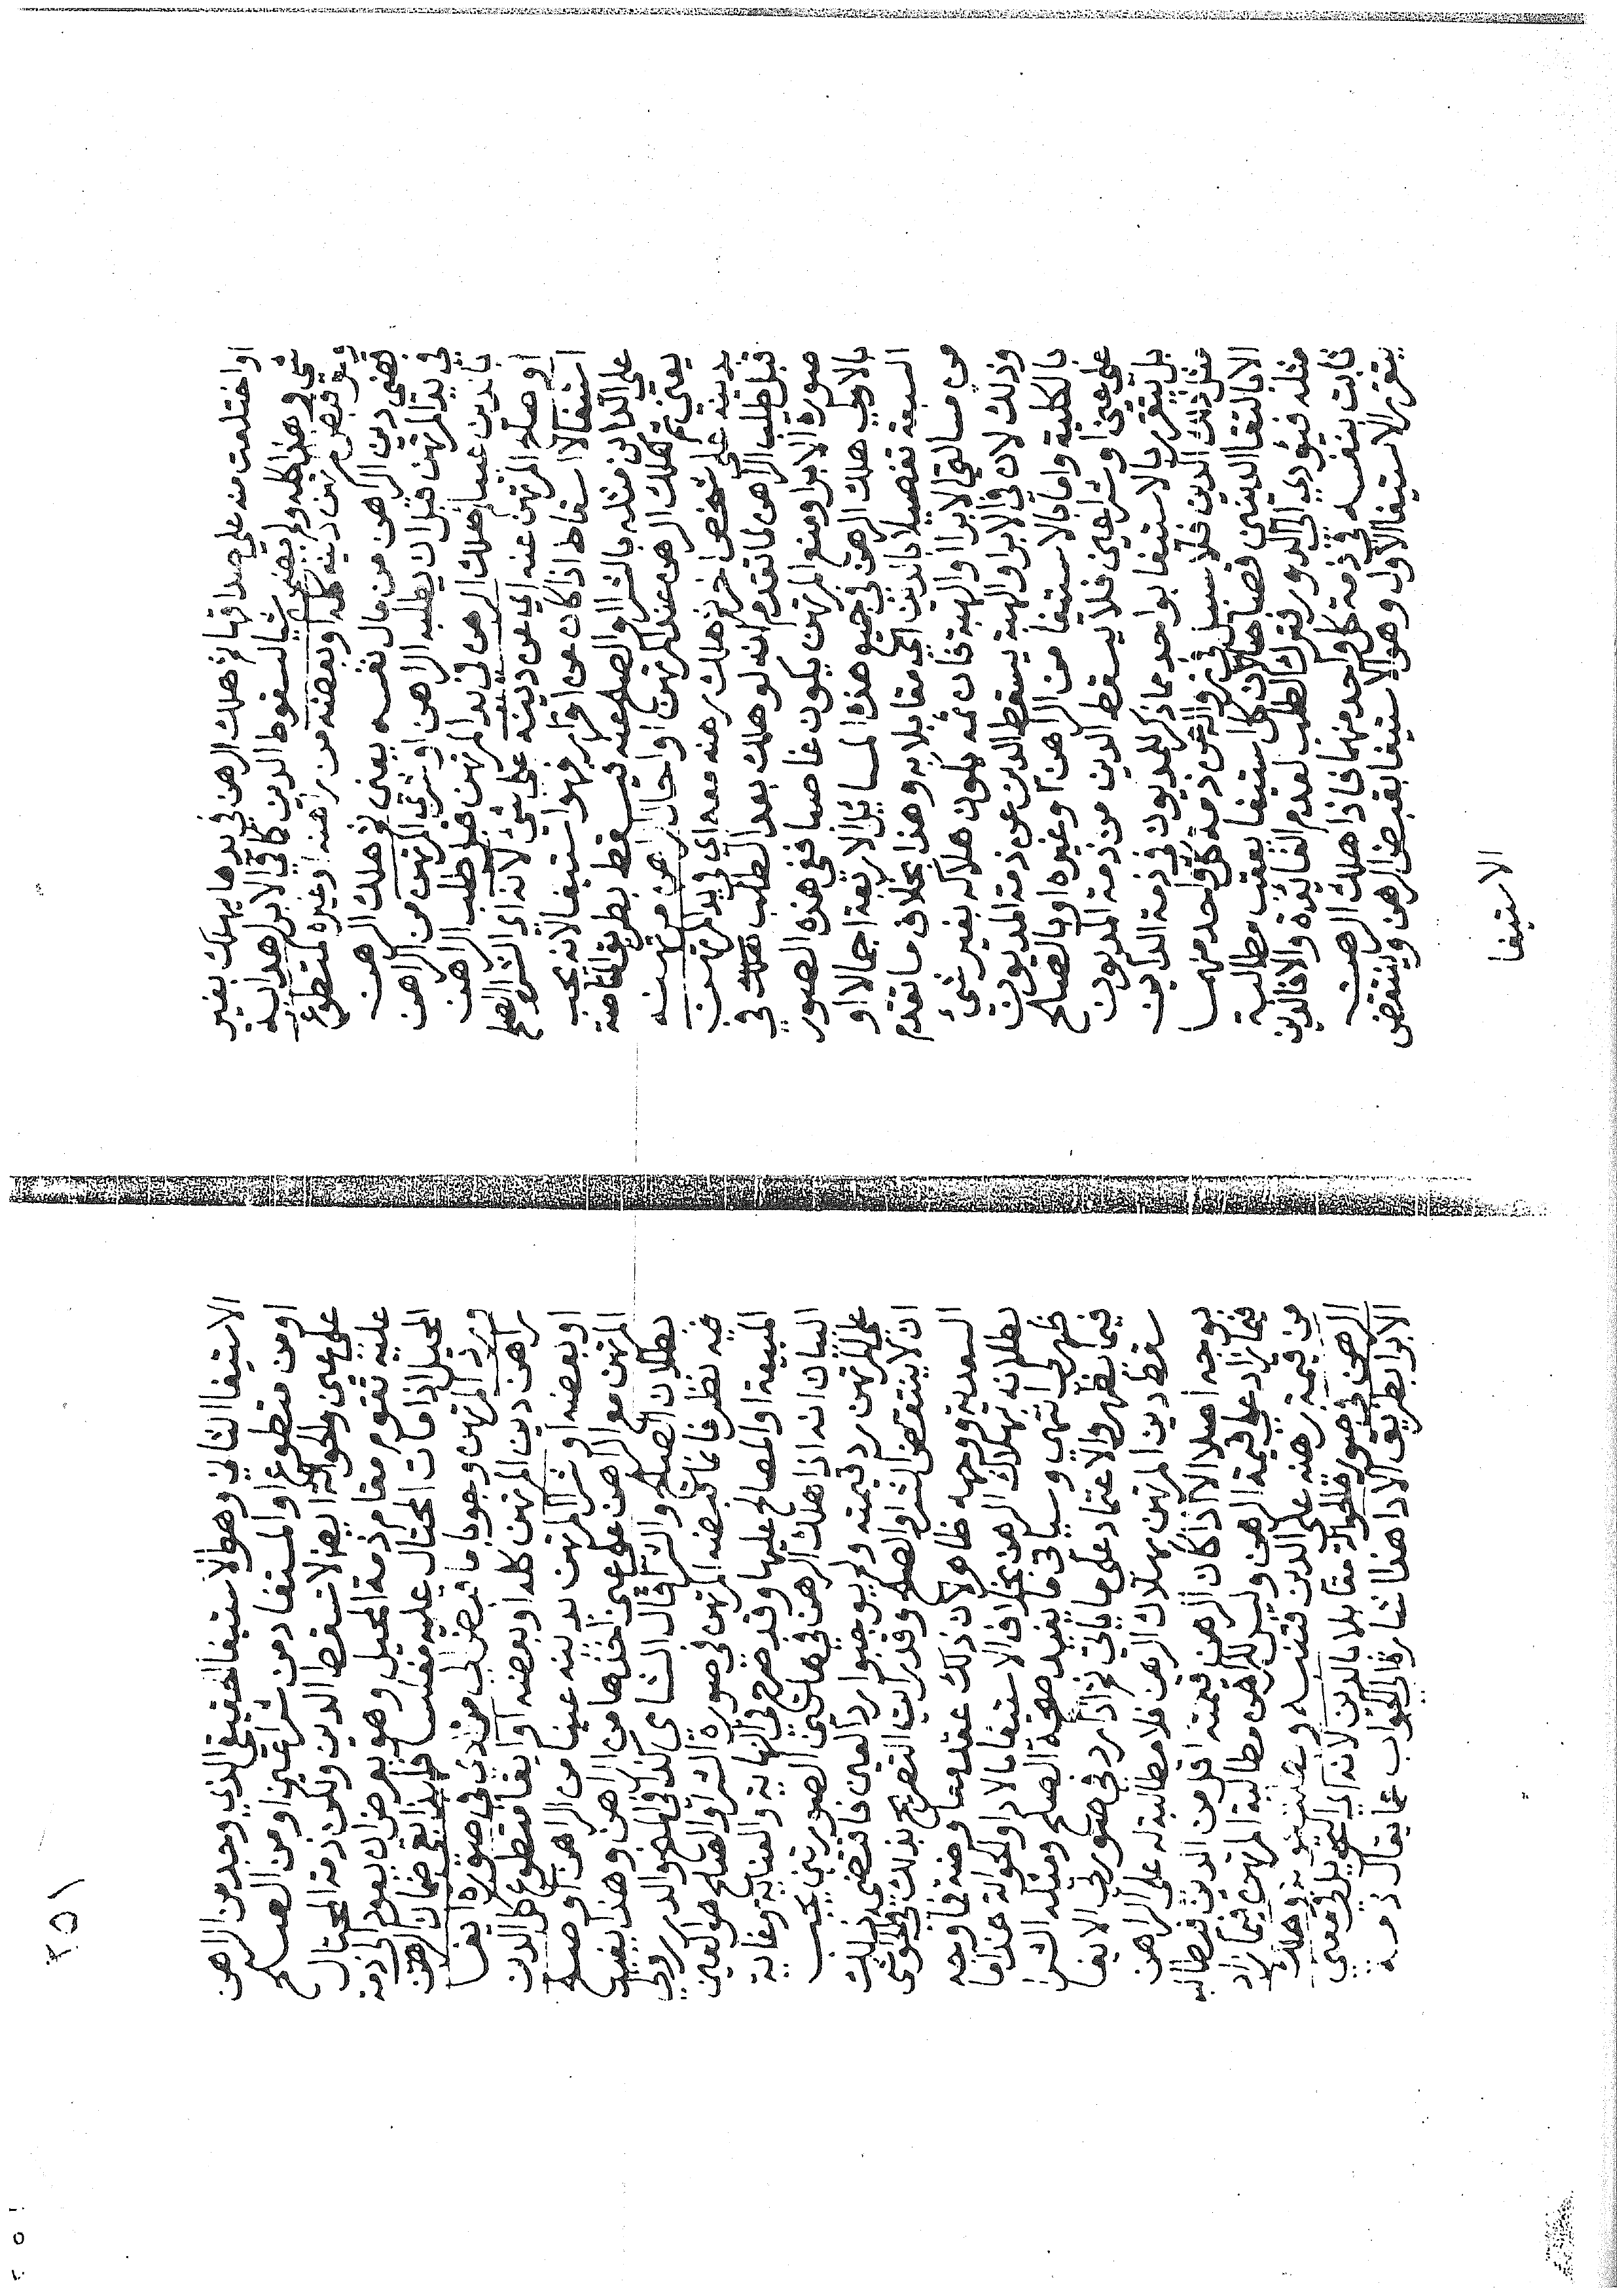 او اختلعت منه على صداقها ثم هلك الرهن في يدها يهلك بغير
شي وهذا كله ولم يضمن شيا لسقوط الدين كما في الابراهدايه
ولو قبض مرتهن دينه كله او بعضه من راهنه او غيره كمتطوع
قضى دين الراهن من مال نفسه يعني ثم هلك الرهن
في يد المرتهن قبل ان يطلبه الراهن او شرى المرتهن من الراهن
بالدين عينا ثم هلك الرهن في يد المرتهن قبل طلب الراهن
او صالح المرتهن عنه اي عن دينه على شي لانه اي الشرا والصلح
استيفا لا اسقاط اذ كان عن اقرار فهو استيفا لانه يجب
على الدائن مثله بالشرا او الصلح عنه فيسقط بطريق المقاصة
يعني ثم هلك الرهن عند المرتهن او احال الراهن مرتهنه
بدينه على شخص اخر ثم هلك رهنه معه اي في يد المرتهن
قبل طلب الراهن لما تقدم انه لو هلك بعد الطلب هلك في
صورة الابرا ومنع المرتهن يكون غاصبا ففي هذه الصور
بالاولى هلك الرهن في جميع هذه المسائل الاربعة اجمالا او
السبعة تفصيلا بالدين اي مقابلا به وهذا بخلاف ما تقدم
من مسالتي الابرا او الهبة فان ثمه يكون هلاكه بغير شيء
وذلك لان في الابرا والهبة يسقط الدين عن ذمة المديون
بالكلية واما بالاستيفا من الراهن او غيره او بالصلح
على عين او شرا عين فلا يسقط الدين من ذمة المديون
بل يتقرر بالاستيفا بواحد مما ذكر للمديون في ذمة الداين
مثل ذلك الدين فلا سبيل في زواله عن ذمة كل واحد منهما
الا بالتقا الدينين قصاصا لكن كل استيفا يعقب مطالبة
مثله فيؤدي الى الدور فترك الطلب لعدم الفائدة والا فالدين
ثابت بنفسه في ذمة كل واحد منهما فاذا هلك الرهن
يتقرر الاستيفا الاول وهو الاستيفا بقبض الرهن وينتقض
الاستيفا
٢٥١
الاستيفا الثاني وهو الاستيفا الحقيقي الذي وجد من الراهن
او من متطوع او المستفاد من شرا عين او من الصلح
على عين والحوالة ايضا لا تسقط الدين ولكن ذمة المحتال
عليه تقوم مقام ذمة المحيل وهو بعرض ان يعود الى ذمة
المحيل اذا مات المحتال عليه مفلسا فلهذا بقي ضمان الرهن
ويرد المرتهن وجوبا ما قبض الى من ادى في صورة ايفا
راهن دين المرتهن كله او بعضه او ايفا متطوع كل الدين
او بعضه او شرا المرتهن بدينه عينا من الراهن او صلح
المرتهن مع الراهن على عين اخذها من الراهن وهذا يفيد
بطلان الصلح والشرا قال الشاي كذا في المنح والدر روى
فيه نظر فان ما قبضه المرتهن في صورة الشرا والصلح هو العين
المبيعة او المصالح عليها وقد صرح في النهاية والعناية وغاية
البيان انه اذا هلك الرهن في هاتين الصورتين يجب
على المرتهن رد قيمته ولم يوجبوا رد العين فاقتضى ذلك
ان لا ينتقض الشرا والصلح وقد رايت التصريح بذلك في حواشي
السعدية ووجهه ظاهر لان ذلك عقد متاوضة فما وجه
بطلانه بهلاك الرهن بخلاف الاستيفا بالادا والحوالة هذا ما
ظهر لي انتهى وسياتي ما يفيد صحة الصلح ومثله الشرا
فيما يظهر والاعتماد على ما ياتي ثم اذا رد في صورتي الايفا
سقط دين المرتهن بهلاك الرهن فلا مطالبة له على الراهن
بوجه اصلا الا اذا كان الرهن قيمته اقل من الدين فيطالبه
فيما زاد على قيمة الرهن وليس للراهن مطالبة المرتهن فيما زاد
من قيمة رهنه على الدين فتنبه وهلك
الرهن في صورة الحوالة مقابلا بالدين لانه اي التحويل في معنى
الابرا بطريق الادا هذا اشارة الى الجواب عما يقال ذمة